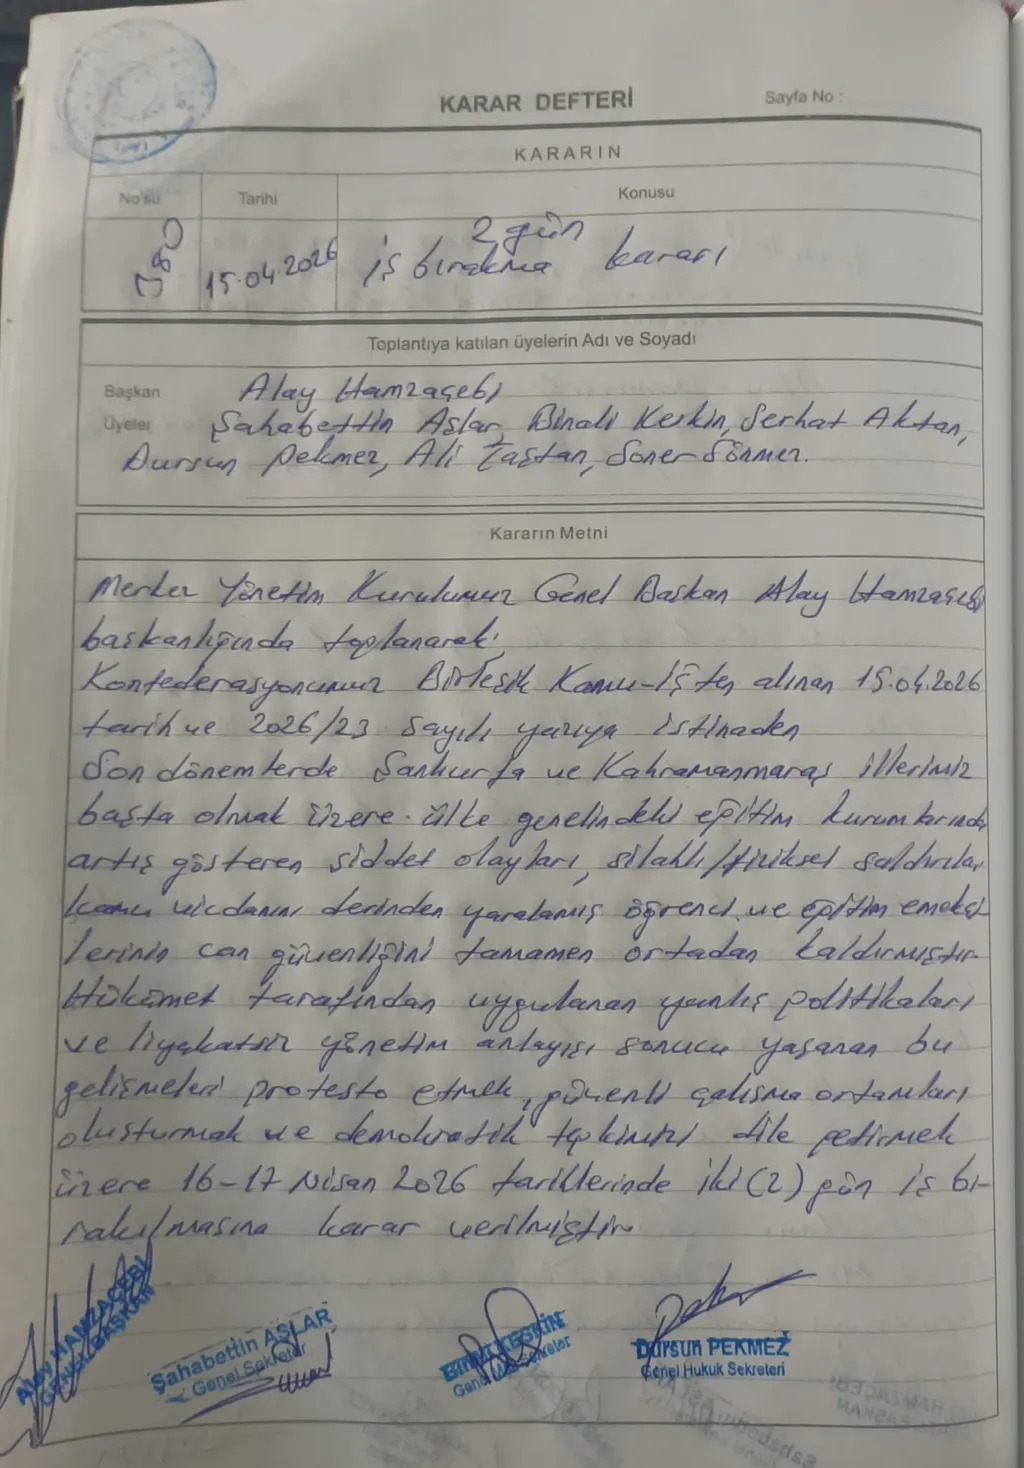 KARAR DEFTERİ
Sayfa No :
KARARIN
No'su
Tarihi
Konusu
380
15.04.2026
2 gün
iş bırakma kararı
Toplantıya katılan üyelerin Adı ve Soyadı
Başkan
Alay Hamzaçebi
Üyeler
Şahabettin Aslar, Binali Keskin, Serhat Aktan,
Dursun Pekmez, Ali Taştan, Soner Sönmez.
Kararın Metni
Merkez Yönetim Kurulumuz Genel Başkan Alay Hamzaçebi
başkanlığında toplanarak;
Konfederasyonumuz Birleşik Kamu-İş'ten alınan 15.04.2026
tarih ve 2026/23 sayılı yazıya istinaden
Son dönemlerde Şanlıurfa ve Kahramanmaraş illerimiz
başta olmak üzere ülke genelindeki eğitim kurumlarında
artış gösteren şiddet olayları, silahlı/fiziksel saldırılar
kamu vicdanını derinden yaralamış öğrenci ve eğitim emekçi-
lerinin can güvenliğini tamamen ortadan kaldırmıştır.
Hükümet tarafından uygulanan yanlış politikaları
ve liyakatsiz yönetim anlayışı sonucu yaşanan bu
gelişmeleri protesto etmek, güvenli çalışma ortamları
oluşturmak ve demokratik tepkimizi dile getirmek
üzere 16-17 Nisan 2026 tarihlerinde iki (2) gün iş bı-
rakılmasına karar verilmiştir.
Alay HAMZAÇEBİ
GENEL BAŞKAN
Şahabettin ASLAR
Genel Sekreter
Binali KESKİN
Genel Sekreter
Dursun PEKMEZ
Genel Hukuk Sekreteri